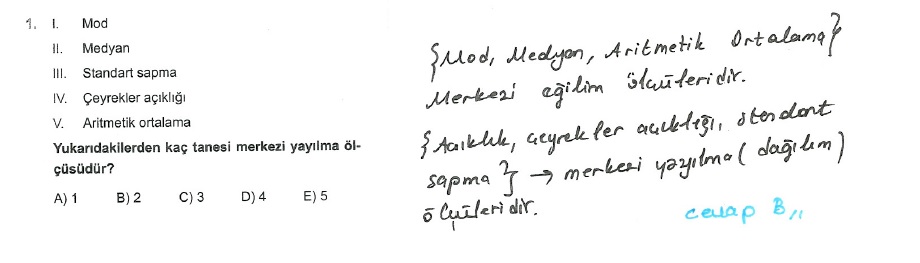 1. I. Mod
II. Medyan
III. Standart sapma
IV. Çeyrekler açıklığı
V. Aritmetik ortalama
Yukarıdakilerden kaç tanesi merkezi yayılma öl-
çüsüdür?
A) 1 B) 2 C) 3 D) 4 E) 5
{Mod, Medyan, Aritmetik Ortalama}
Merkezi eğilim ölçüleridir.
{Açıklık, çeyrekler açıklığı, standart
sapma} → merkezi yayılma (dağılım)
ölçüleridir.
cevap B//